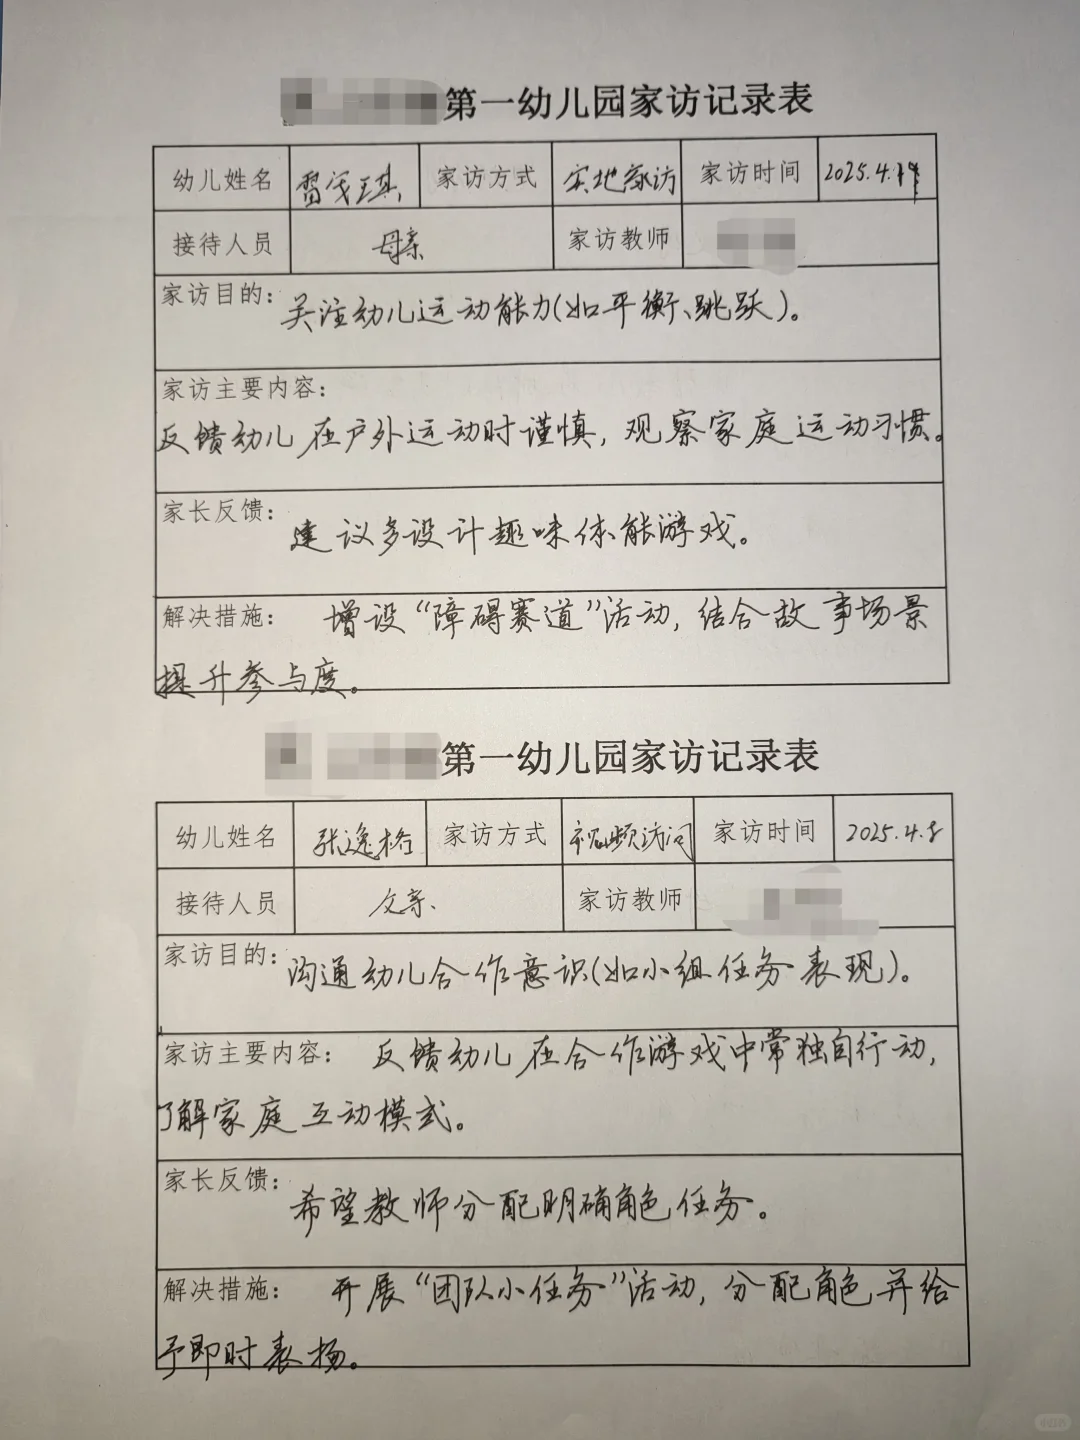 第一幼儿园家访记录表
幼儿姓名 雷 琪 家访方式 实地家访 家访时间 2025.4.
接待人员 母亲 家访教师
家访目的：关注幼儿运动能力(如平衡、跳跃)。
家访主要内容：
反馈幼儿在户外运动时谨慎，观察家庭运动习惯。
家长反馈：建议多设计趣味体能游戏。
解决措施：增设“障碍赛道”活动，结合故事场景
提升参与度。
第一幼儿园家访记录表
幼儿姓名 张逸格 家访方式 视频访问 家访时间 2025.4.8
接待人员 父亲、 家访教师
家访目的：沟通幼儿合作意识(如小组任务表现)。
家访主要内容：反馈幼儿在合作游戏中常独自行动，
了解家庭互动模式。
家长反馈：希望教师分配明确角色任务。
解决措施：开展“团队小任务”活动，分配角色并给
予即时表扬。